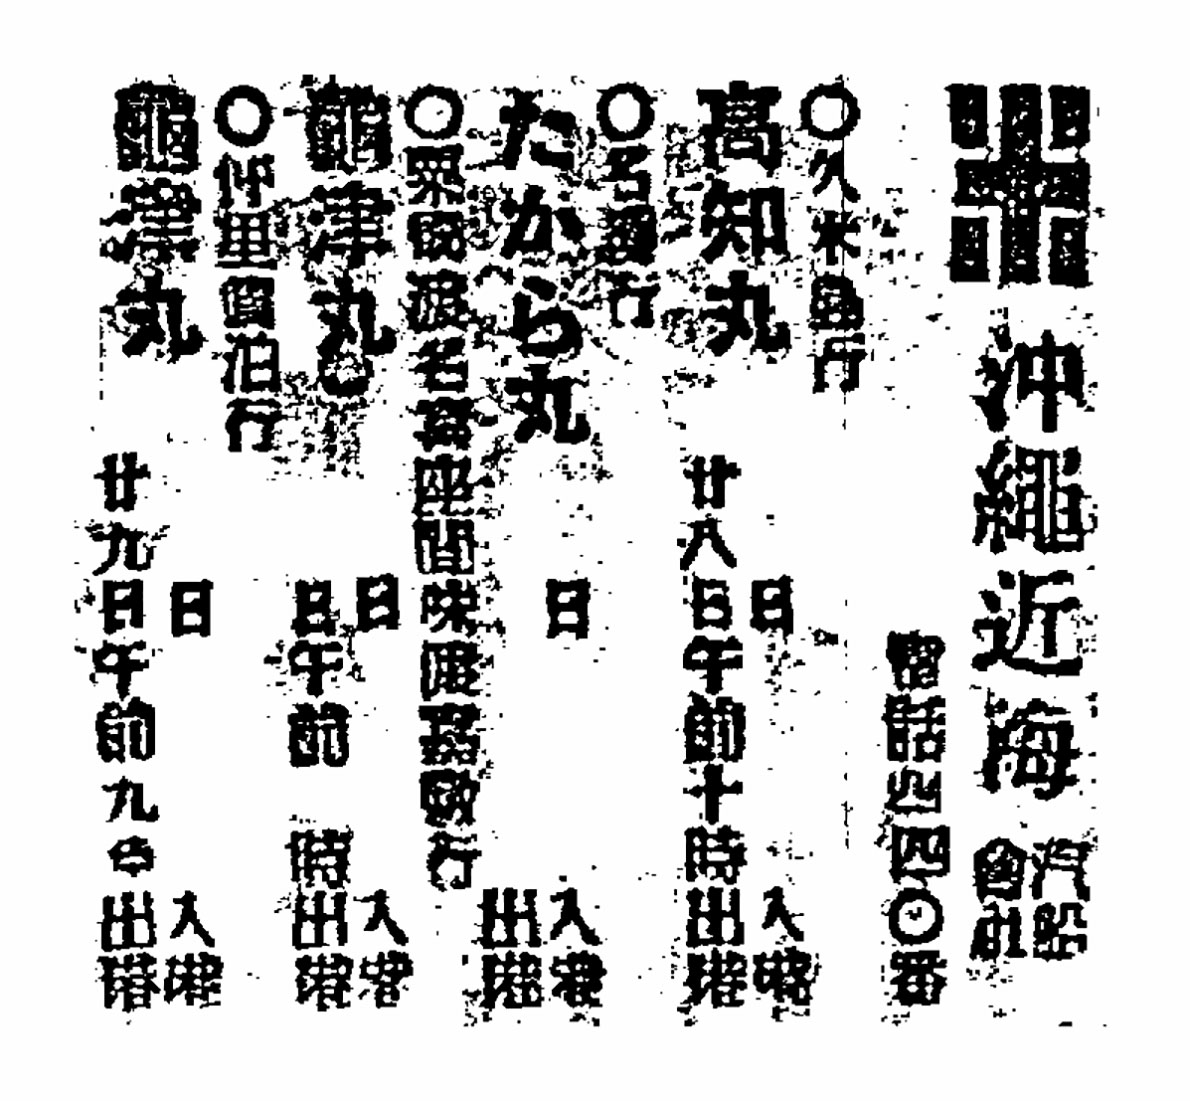 沖繩近海汽船會社
電話二四〇番
〇久米島行
高知丸
日入港
廿八日午前十時出港
〇名護行
たから丸
日入港
出港
〇粟國渡名喜座間味渡嘉敷行
龜津丸
日入港
日午前 時出港
〇仲里儀泊行
龜津丸
日入港
廿九日午前九時出港